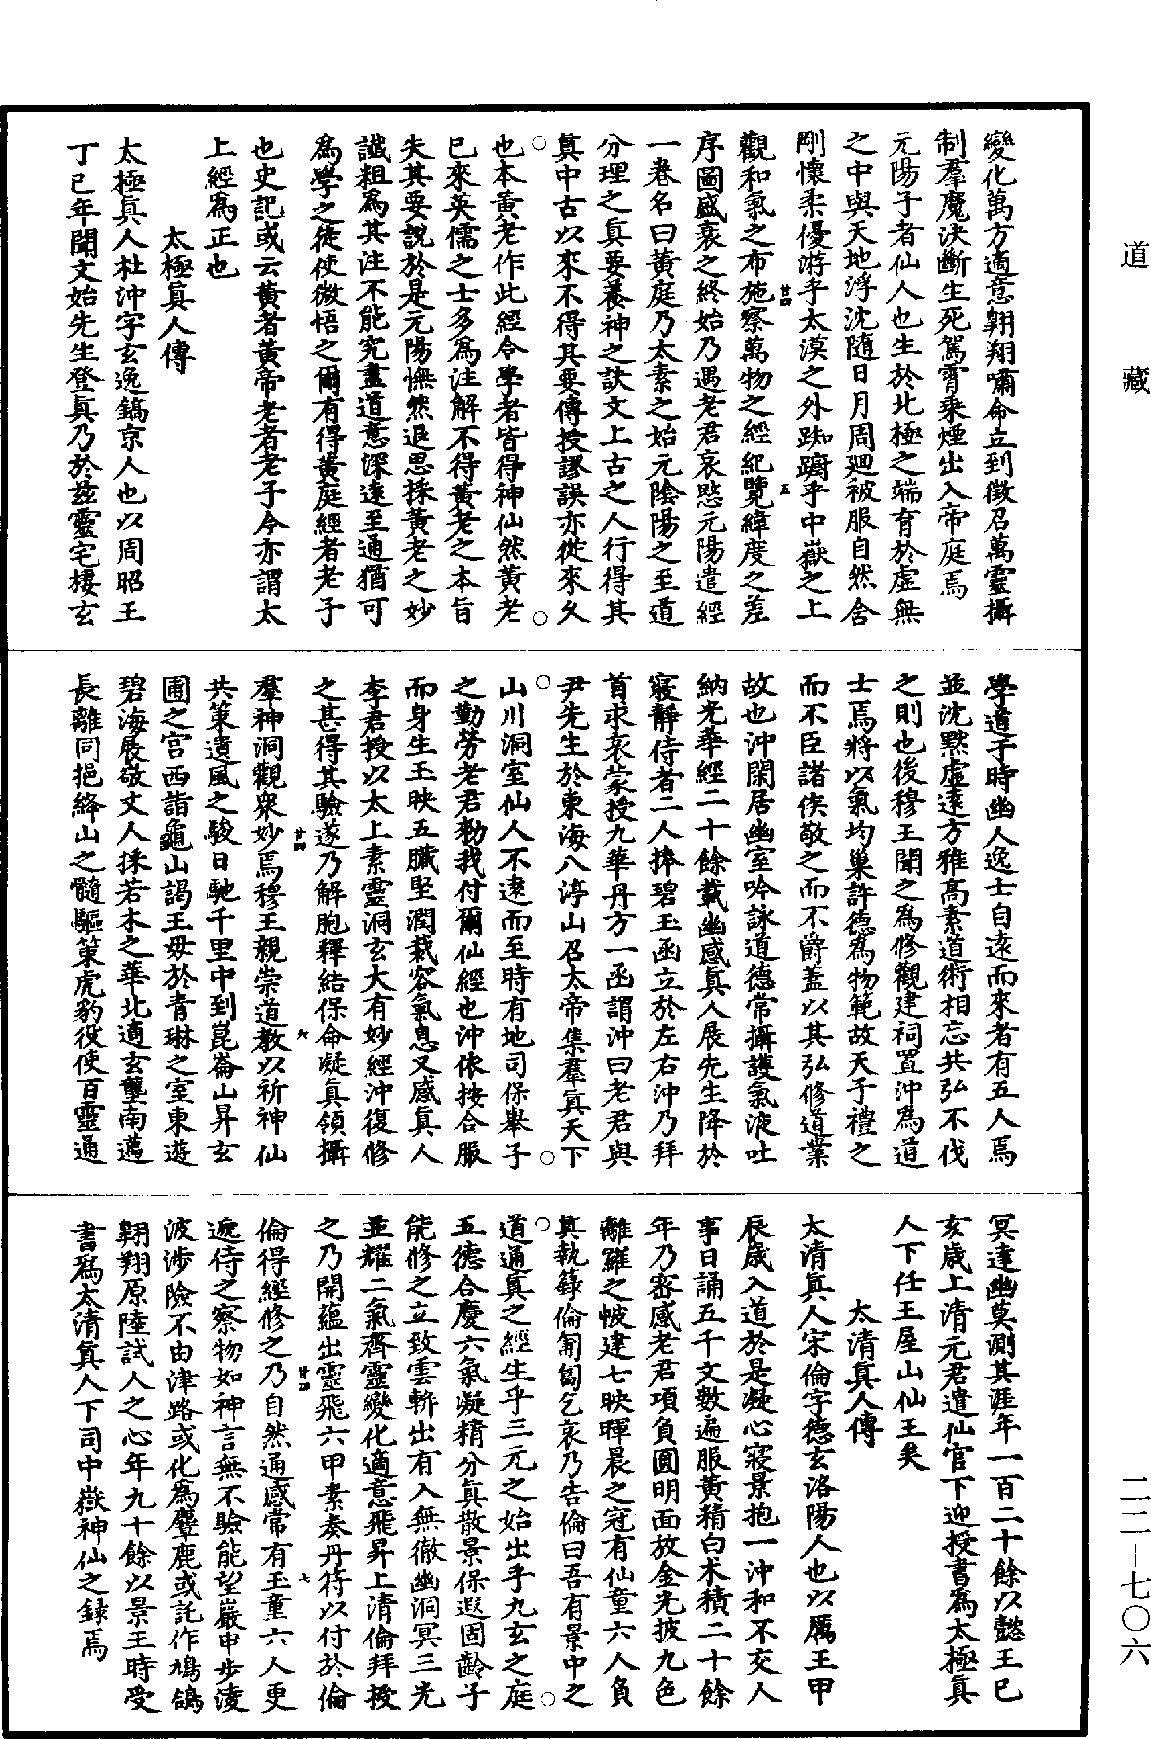 道藏
二二—七〇六
變化萬方適意翺翔嘯命立到徵召萬靈攝
制羣魔決斷生死駕霄乘煙出入帝庭焉
元陽子者仙人也生於北極之端育於虛無
之中與天地浮沈隨日月周廻被服自然含
剛懷柔優游乎太漠之外踟躕乎中嶽之上
觀和氣之布施察萬物之經紀覽緯度之差
序圖盛衰之終始乃遇老君哀愍元陽遣經
一卷名曰黃庭乃太素之始元陰陽之至道
分理之真要養神之訣文上古之人行得其
真中古以來不得其要傳授謬誤亦從來久
也本黃老作此經令學者皆得神仙然黃老
已來英儒之士多為注解不得黃老之本旨
失其要說於是元陽憮然退思採黃老之妙
識粗為其注不能究盡道意深遠至通猶可
為學之徒使微悟之爾有得黃庭經者老子
也史記或云黃者黃帝老者老子今亦謂太
上經為正也
太極真人傳
太極真人杜沖字玄逸鎬京人也以周昭王
丁巳年聞文始先生登真乃於茲靈宅棲玄
學道于時幽人逸士自遠而來者有五人焉
並沈默虛遠方雅高素道術相忘共弘不伐
之則也後穆王聞之為修觀建祠置沖為道
士焉將以氣均巢許德為物範故天子禮之
而不臣諸侯敬之而不爵蓋以其弘修道業
故也沖閑居幽室吟詠道德常攝護氣液吐
納光華經二十餘載幽感真人展先生降於
寢靜侍者二人捧碧玉函立於左右沖乃拜
首求哀蒙授九華丹方一函謂沖曰老君與
尹先生於東海八渟山召太帝集羣真天下
山川洞室仙人不遠而至時有地司保舉子
之勤勞老君勑我付爾仙經也沖依按合服
而身生玉映五臟堅潤裁容氣息又感真人
李君授以太上素靈洞玄大有妙經沖復修
之甚得其驗遂乃解胞釋結保命凝真領攝
羣神洞觀眾妙焉穆王親崇道教以祈神仙
共策遺風之駿日馳千里中到崑崙山昇玄
圃之宮西詣龜山謁王母於青琳之室東遊
碧海展敬丈人採若木之華北適玄壟南邁
長離同挹絳山之髓驅策虎豹役使百靈通
冥達幽莫測其涯年一百二十餘以懿王己
亥歲上清元君遣仙官下迎授書為太極真
人下任王屋山仙王矣
太清真人傳
太清真人宋倫字德玄洛陽人也以厲王甲
辰歲入道於是凝心寢景抱一沖和不交人
事日誦五千文數遍服黃精白朮積二十餘
年乃密感老君項負圓明面放金光披九色
離羅之帔建七映暉晨之冠有仙童六人負
真執籙倫匍匐乞哀乃告倫曰吾有景中之
道通真之經生乎三元之始出乎九玄之庭
五德合慶六氣凝精分真散景保遐固齡子
能修之立致雲輧出有入無徹幽洞冥三光
並耀二氣齊靈變化適意飛昇上清倫拜授
之乃開蘊出靈飛六甲素奏丹符以付於倫
倫得經修之乃自然通感常有玉童六人更
遞侍之察物如神言無不驗能望巖申步淩
波涉險不由津路或化為麞鹿或託作鳩鴿
翺翔原陸試人之心年九十餘以景王時受
書為太清真人下司中嶽神仙之錄焉